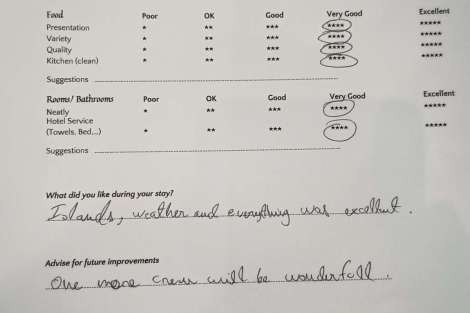 Food Poor OK Good Very Good Excellent
Presentation * ** *** **** *****
Variety * ** *** **** *****
Quality * ** *** **** *****
Kitchen (clean) * ** *** **** *****
Suggestions
Rooms/ Bathrooms Poor OK Good Very Good Excellent
Neatly * ** *** **** *****
Hotel Service
(Towels, Bed,...) * ** *** **** *****
Suggestions
What did you like during your stay?
Islands, weather and everything was excellent.
Advise for future improvements
One more crew will be wonderfull.